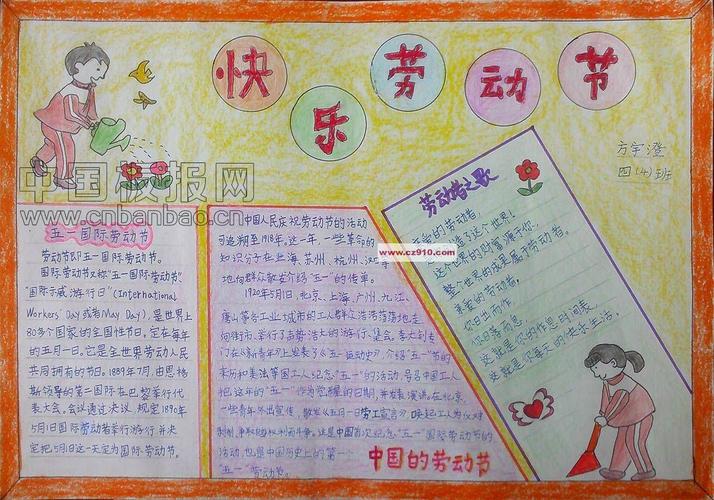 快乐劳动节
方宇澄
四(4)班
中国板报网
www.cnbanbao.cn
五一国际劳动节
劳动节即五一国际劳动节。
国际劳动节又称"五一国际劳动节"
"国际示威游行日"(International
Workers' Day或者May Day),是世界上
80多个国家的全国性节日。定在每年
的五月一日。它是全世界劳动人民
共同拥有的节日。1889年7月,由恩格
斯领导的第二国际在巴黎举行代
表大会。会议通过决议,规定1890年
5月1日国际劳动者举行游行,并决
定把5月1日这一天定为国际劳动节。
中国人民庆祝劳动节的活动
可追溯至1918年。这一年,一些革命的
知识分子在上海、苏州、杭州、汉口等
地向群众散发介绍"五一"的传单。
1920年5月1日,北京、上海、广州、九江、
唐山等各工业城市的工人群众浩浩荡荡地走
向街市,举行了声势浩大的游行、集会。
介绍"五一"节的
来历和美法等国工人纪念"五一"的活动,号召中国工人
把这年的"五一"作为觉醒的日期,并发表演讲。在北京,
一些青年外出宣传,散发《五月一日劳工宣言》,唤起工人为反对
这是中国首次纪念"五一"国际劳动节的
活动,也是中国历史上的第一个
"五一"劳动节。
中国的劳动节
劳动者之歌
亲爱的劳动者,
造了这个世界!
这个世界的财富源于你,
整个世界的成果属于劳动者。
亲爱的劳动者,
你日出而作,
你日落而息,
这就是你的作息时间表,
这就是你每天的快乐生活。
www.cz910.com